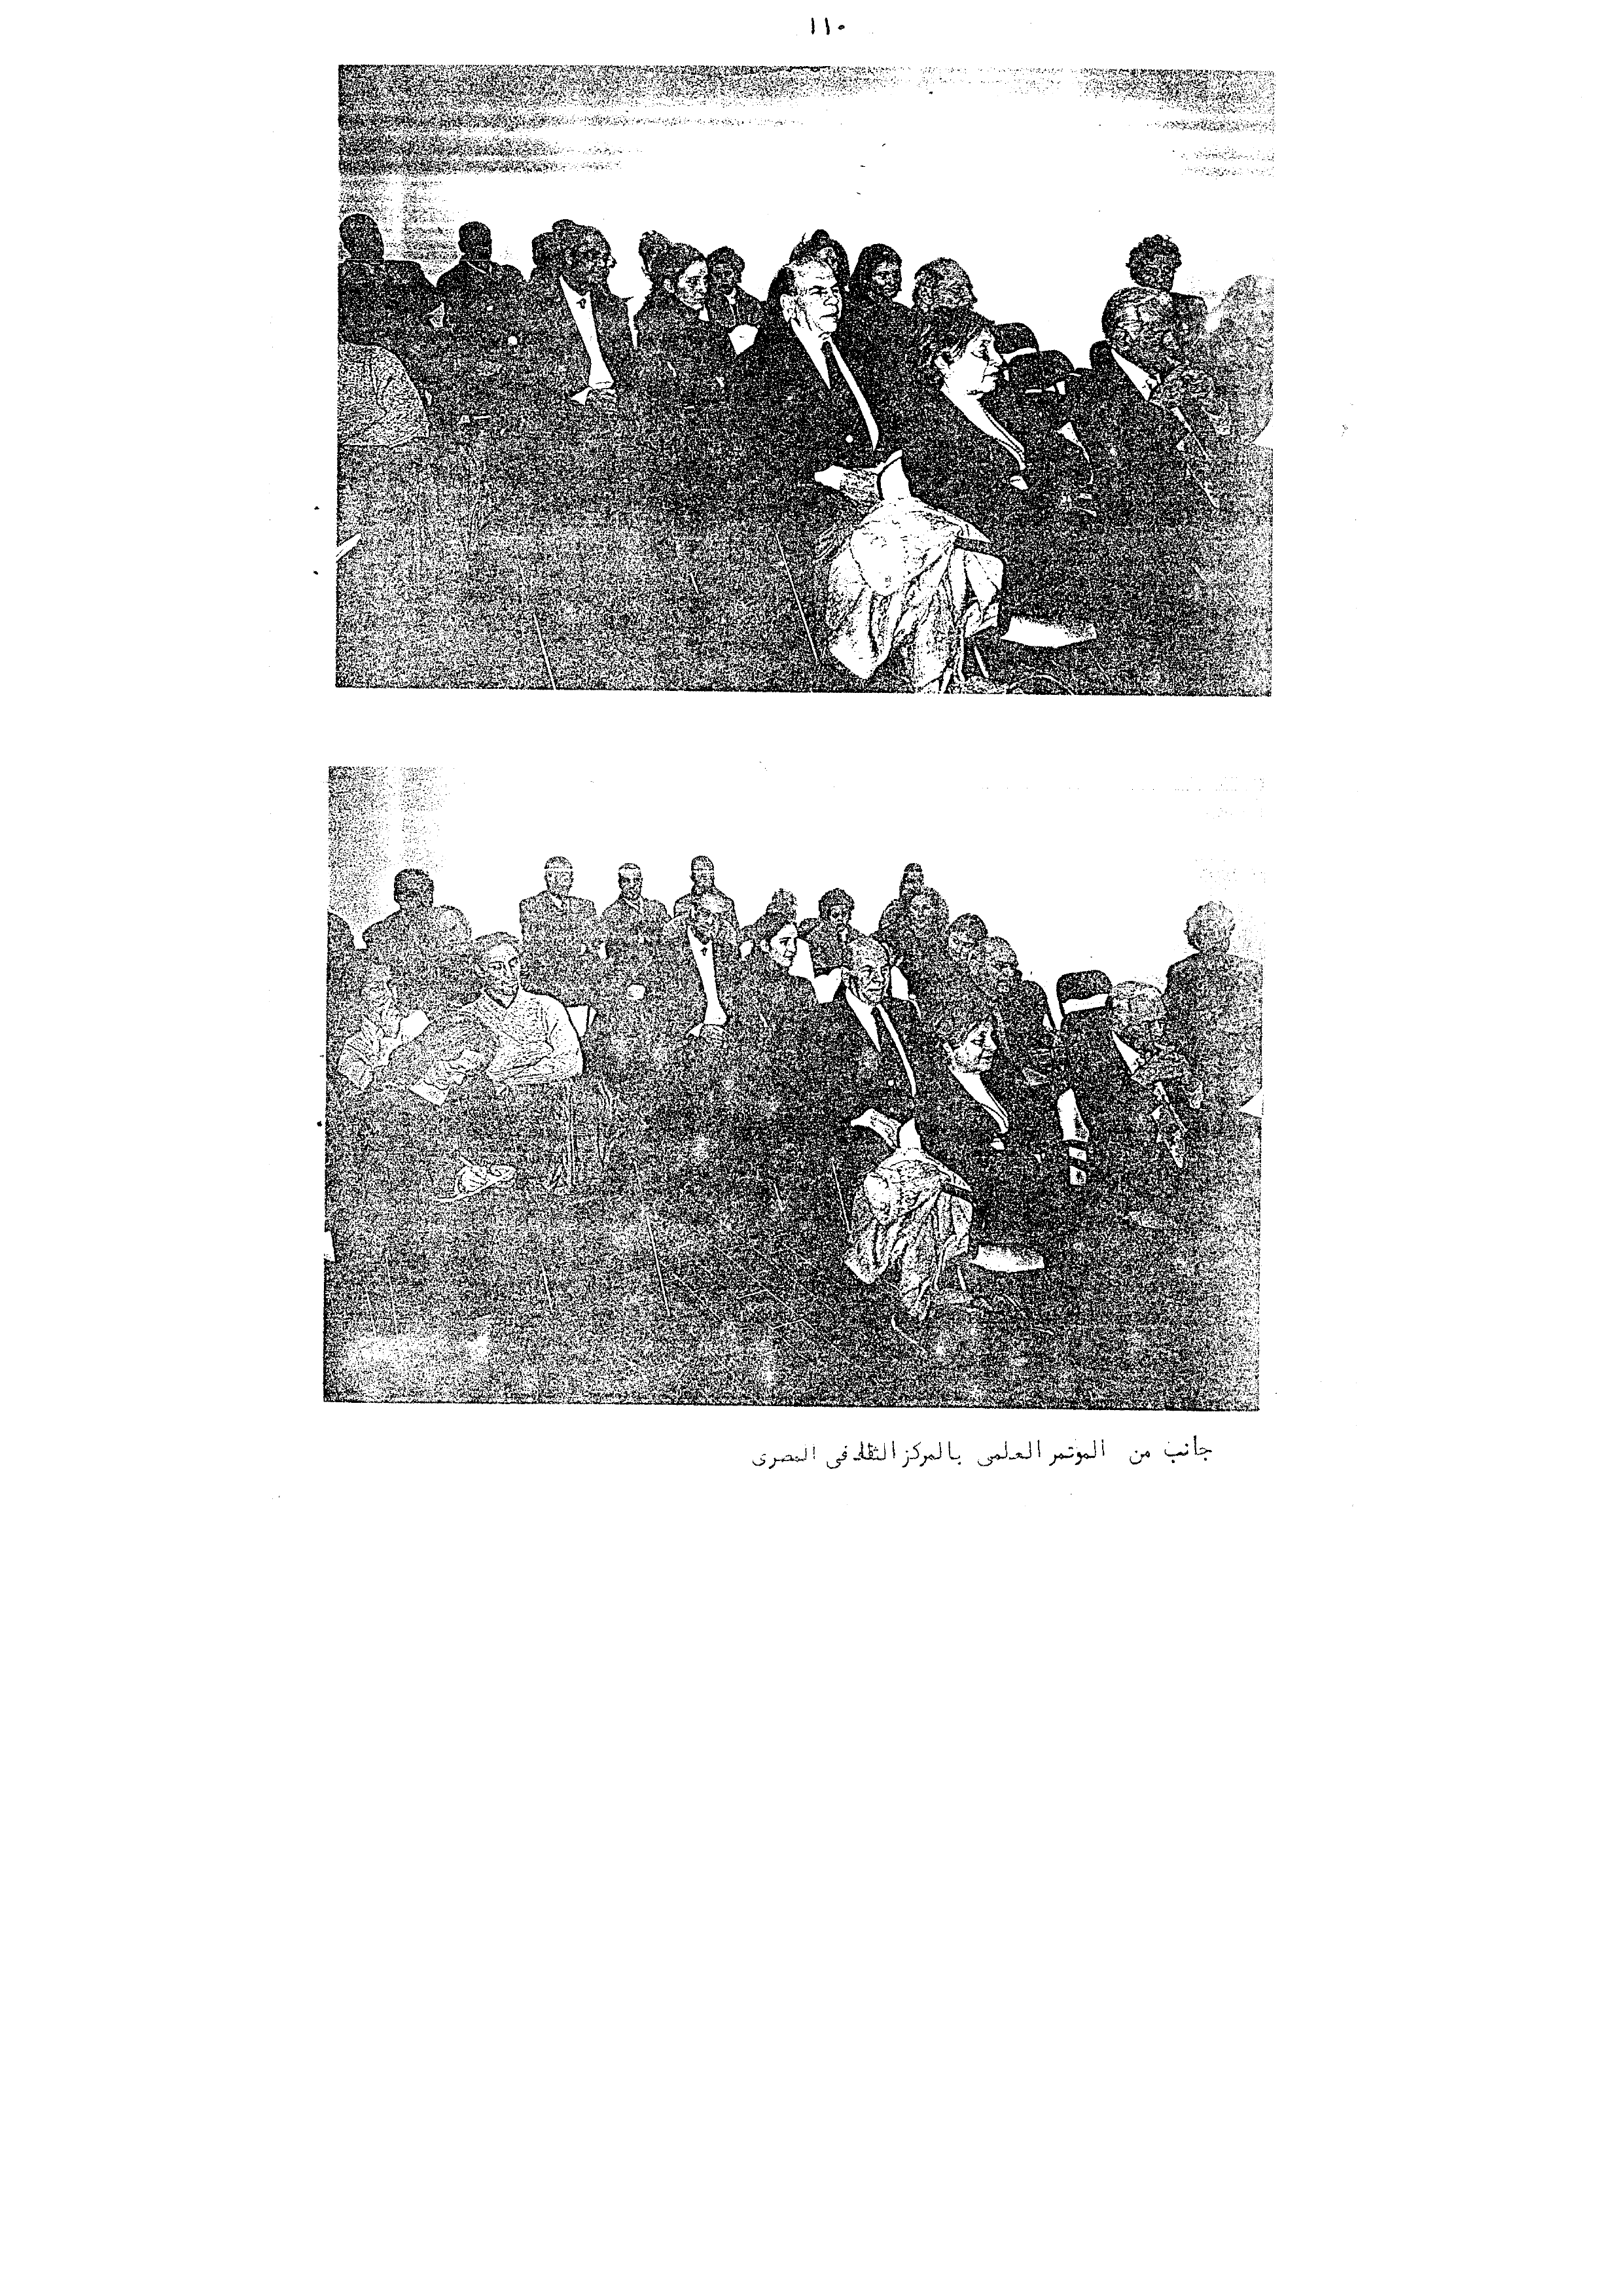 ١١٠
جانب من المؤتمر العلمى بالمركز الثقافى المصرى